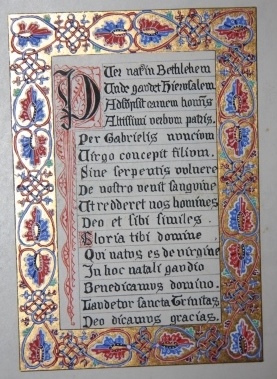 Puer nat' in Bethlehem
Unde gaudet Hierusalem
Adsūpsit carnem hominis
Altissimi verbum patris.
Per Gabrielis nuncium
Virgo concepit filium.
Sine serpentis vulnere
De nostro venit sanguine
Ut redderet nos homines
Deo et sibi similes.
Gloria tibi domine
Qui natus es de virgine
In hoc natali gaudio
Benedicamus domino.
Laudetur sancta Trinitas
Deo dicamus gracias.